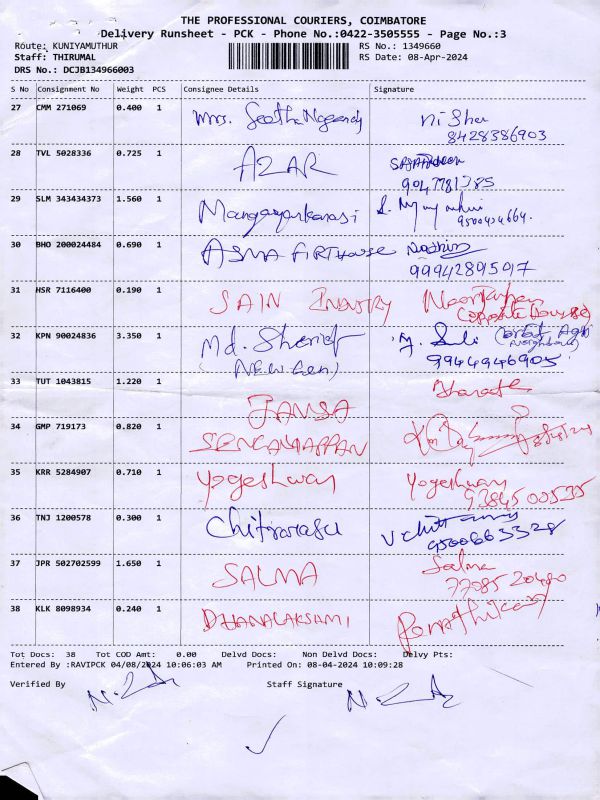 THE PROFESSIONAL COURIERS, COIMBATORE
Delivery Runsheet - PCK - Phone No.:0422-3505555 - Page No.:3
Route: KUNIYAMUTHUR RS No.: 1349660
Staff: THIRUMAL RS Date: 08-Apr-2024
DRS No.: DCJB134966003
S No Consignment No Weight PCS Consignee Details Signature
27 CMM 271069 0.400 1 Mrs. Seetha Nisha
8428386903
28 TVL 5028336 0.725 1 AZAR
29 SLM 343434373 1.560 1 Mangayarkarasi
30 BHO 200024484 0.690 1 ASMA FIRTHOUSE
99942895017
31 HSR 7116400 0.190 1 SAIN INDUSTRY
32 KPN 90024836 3.350 1 Md. Sherief
(NEW Gen) 9944946905
33 TUT 1043815 1.220 1 JANSA Bharath
34 GMP 719173 0.820 1 SENGALIAPPAN
35 KRR 5284907 0.710 1 Yogeshwar Yogeshwar
9384500535
36 TNJ 1200578 0.300 1 Chitrarasu
9500663328
37 JPR 502702599 1.650 1 SALMA Salma
38 KLK 8098934 0.240 1 DHANALAKSUMI
Tot Docs: 38 Tot COD Amt: 0.00 Delvd Docs: Non Delvd Docs: Delvy Pts:
Entered By :RAVIPCK 04/08/2024 10:06:03 AM Printed On: 08-04-2024 10:09:28
Verified By Staff Signature